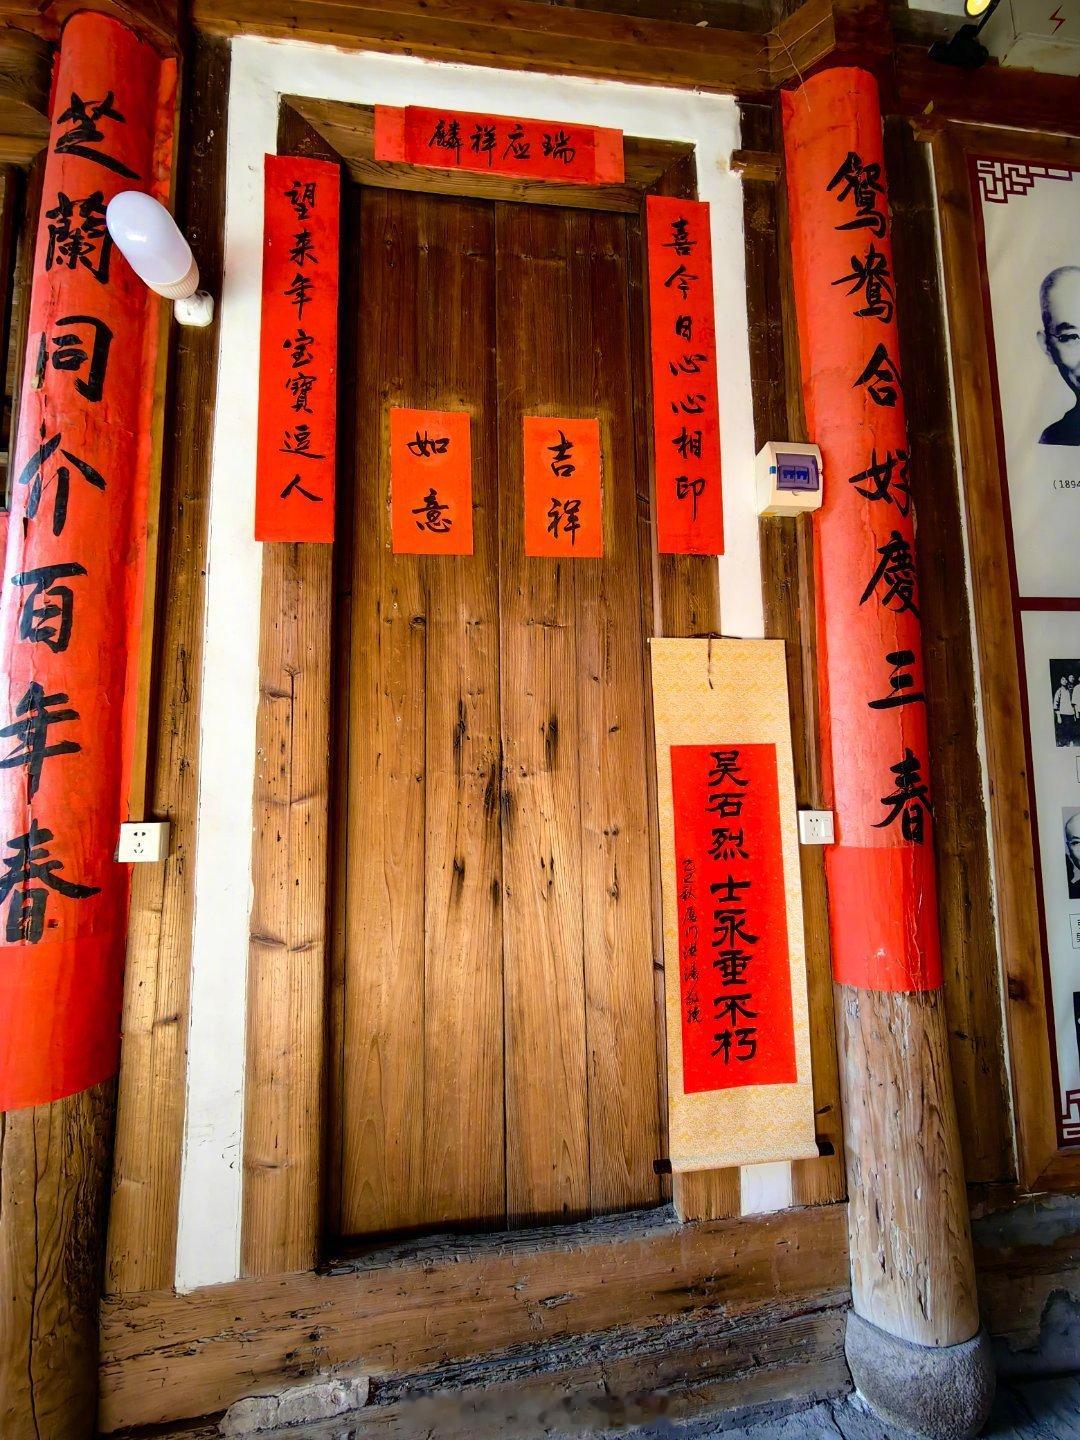 鴛鴦合好慶三春
芝蘭同介百年春
瑞应祥麟
喜今日心心相印
望来年宝寶逗人
吉祥
如意
吴石烈士永垂不朽
(1894